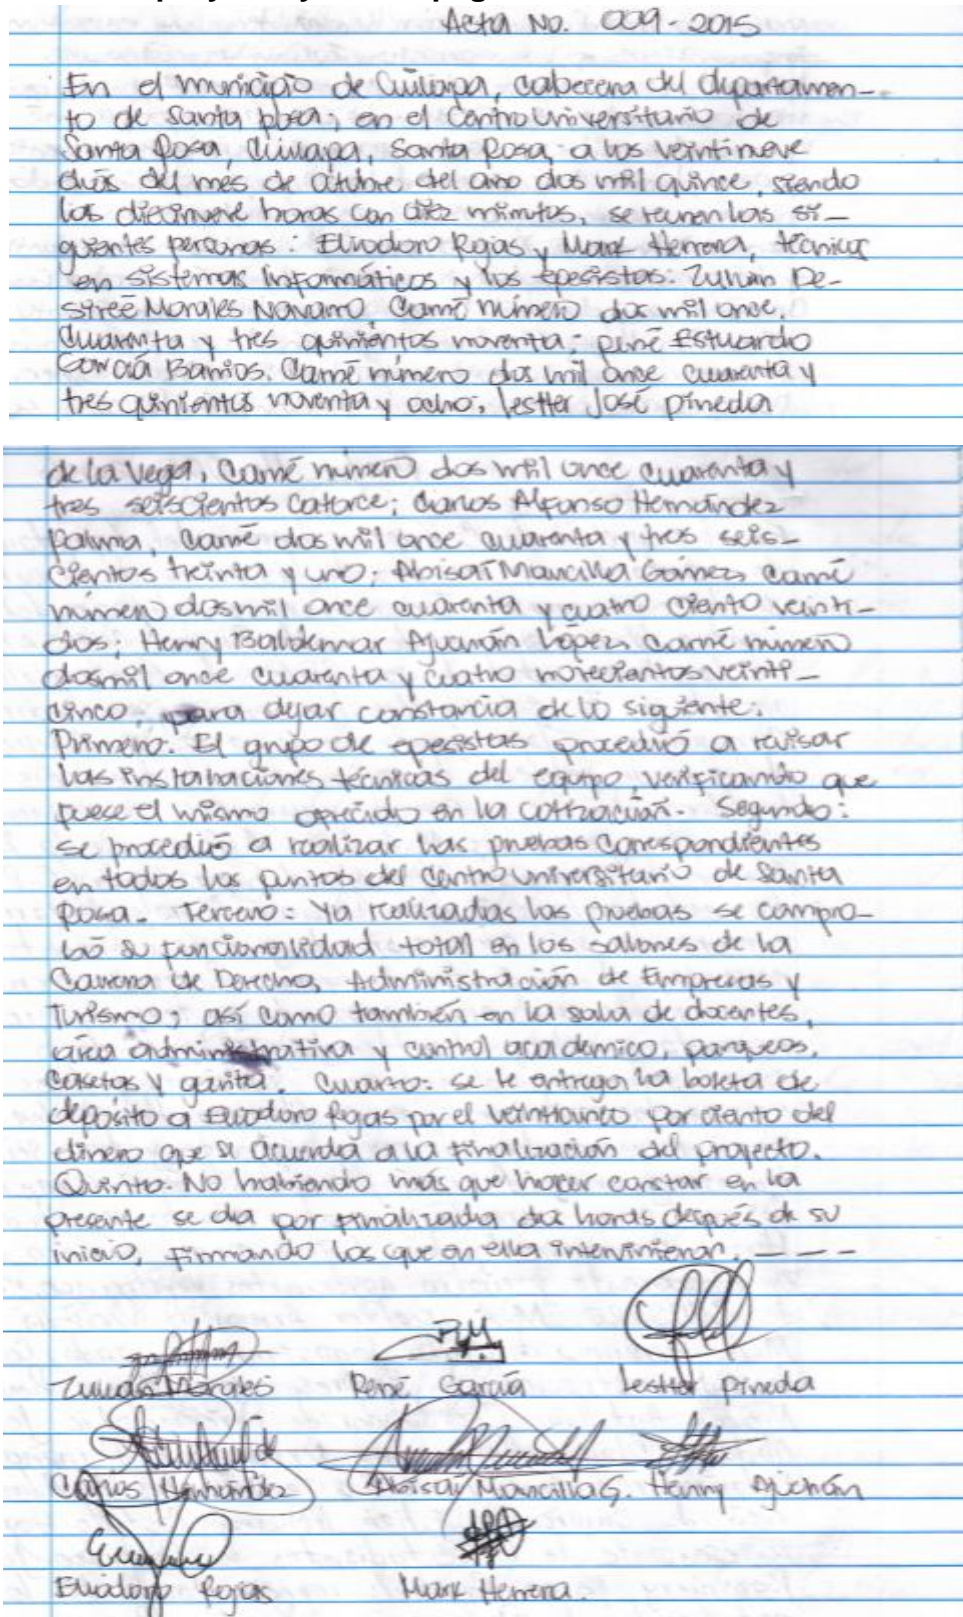 Acta No. 009-2015
En el municipio de Cuilapa, cabecera del departamen-
to de Santa Rosa; en el Centro Universitario de
Santa Rosa, Cuilapa, Santa Rosa, a los veintinueve
días del mes de octubre del año dos mil quince, siendo
las diecinueve horas con diez minutos, se reunen las si-
guientes personas: Eliodoro Rojas y Mark Herrera, técnicos
en sistemas Informáticos y los epesistas: Zulman De-
sireé Morales Navarro Carné número dos mil once,
cuarenta y tres quinientos noventa; René Estuardo
García Barrios. Carné número dos mil once cuarenta y
tres quinientos noventa y ocho, Lestter José Pineda
de la Vega, Carné número dos mil once cuarenta y
tres seiscientos catorce; Carlos Alfonso Hernández
Palma, Carné dos mil once cuarenta y tres seis-
cientos treinta y uno; Abisaí Mancilla Gómez, Carné
número dos mil once cuarenta y cuatro ciento veinti-
dos; Henry Baldemar Ajuchán López, Carné número
dosmil once cuarenta y cuatro novecientos veinti-
cinco; para dejar constancia de lo siguiente:
Primero: El grupo de epesistas procedió a revisar
las instalaciones técnicas del equipo, verificando que
fuese el mismo ofrecido en la cotización. Segundo:
se procedió a realizar las pruebas correspondientes
en todos los puntos del Centro universitario de Santa
Rosa. Tercero: Ya realizadas las pruebas se compro-
bó su funcionalidad total en los salones de la
Carrera de Derecho, Administración de Empresas y
Turismo; así como también en la sala de docentes,
área administrativa y control academico, parqueos,
Casetas y garita. Cuarto: se le entrega la boleta de
depósito a Eliodoro Rojas por el veinticinco por ciento del
dinero que se acuerda a la finalización del proyecto.
Quinto. No habiendo más que hacer constar en la
presente se da por finalizada dos horas después de su
inicio, firmando los que en ella intervinieron. - - -
Morales René García Lestter Pineda
Carlos Hernández Abisaí Mancilla G. Henry Ajuchán
Eliodoro Rojas Mark Herrera.